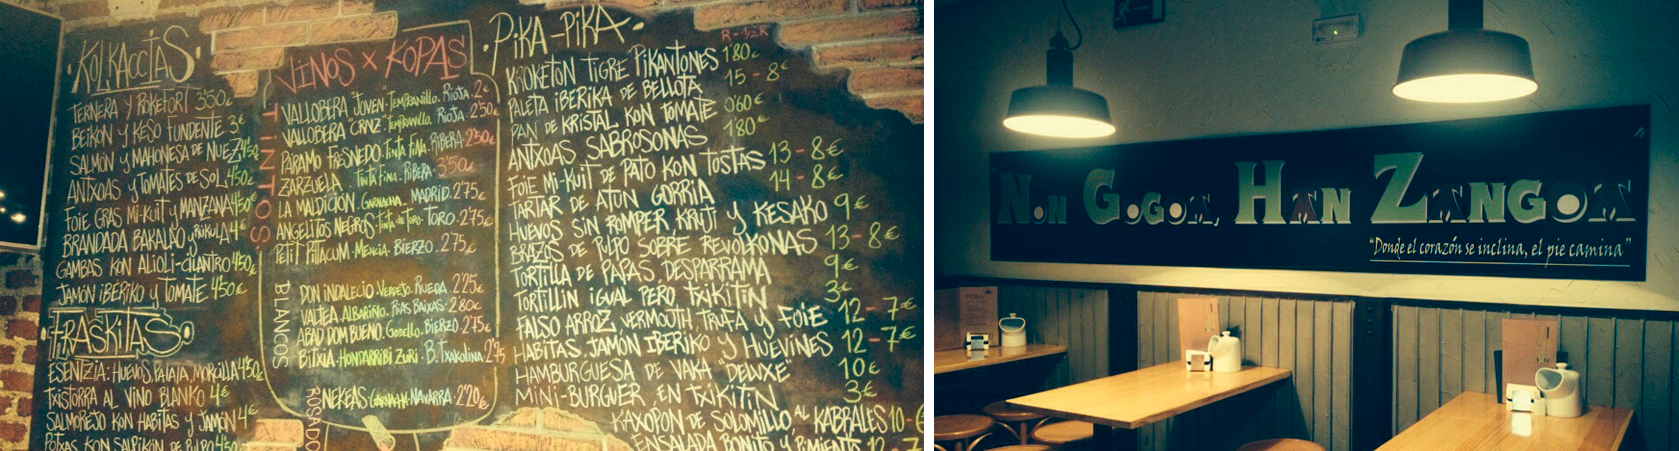 KOLKACCIAS
TERNERA Y ROKEFORT 3'50€
BEIKON Y KESO FUNDENTE 3€
SALMÓN Y MAHONESA DE NUEZ 4'50
ANTXOAS Y TOMATES DE SOL 4'50€
FOIE GRAS MI-KUIT Y MANZANA 4'50€
BRANDADA BAKALAO Y RUKULA 4€
GAMBAS KON ALIOLI-CILANTRO 4'50€
JAMÓN IBERIKO Y TOMATE 4'50€
FRASKITAS
ESENTZIA: HUEVOS, PATATA, MORCILLA 4'50€
TXISTORRA AL VINO BLANKO 4€
SALMOREJO KON HABITAS Y JAMÓN 4€
POTXAS KON SALPIKÓN DE PULPO 4'50€
VINOS X KOPAS
TINTOS
VALLOBERA "JOVEN" TEMPRANILLO. RIOJA. 2€
VALLOBERA "CRNZ" TEMPRANILLO. RIOJA. 2'50€
PÁRAMO FRESNEDO. TINTA FINA. RIBERA 2'50€
ZARZUELA. TINTA FINA. RIBERA. 3'50€
LA MALDICIÓN. GARNACHA. MADRID. 2'75€
ANGELITOS NEGROS. TINTA DE TORO. TORO. 2'75€
PETIT PITTACUM. MENCIA. BIERZO. 2'75€
BLANCOS
DON INDALECIO. VERDEJO. RUEDA. 2'25€
VALTEA. ALBARIÑO. RIAS BAIXAS. 2'80€
ABAD DOM BUENO. GODELLO. BIERZO. 2'75€
BITXIA. HONDARRIBI ZURI. B. TXAKOLINA. 2'75
ROSADO
NEKEAS GARNACHA. NAVARRA. 2'20€
PIKA-PIKA
R - 1/2 R
KROKETON TIGRE PIKANTONES 1'80€
PALETA IBERIKA DE BELLOTA 15 - 8€
PAN DE KRISTAL KON TOMATE 0'60€
ANTXOAS SABROSONAS 1'80€
FOIE MI-KUIT DE PATO KON TOSTAS 13 - 8€
TARTAR DE ATÚN GORRIA 14 - 8€
HUEVOS SIN ROMPER, KRUJI Y KESAKO 9€
BRAZOS DE PULPO SOBRE REVOLKONAS 13 - 8€
TORTILLA DE PAPAS DESPARRAMA 9€
TORTILLIN IGUAL PERO, TXIKITIN 3€
FALSO ARROZ, VERMOUTH, TRUFA Y FOIE 12 - 7€
HABITAS, JAMÓN IBERIKO Y HUEVINES 12 - 7€
HAMBURGUESA DE VAKA "DELUXE" 10€
MINI-BURGUER EN TXIKITIN 3€
KAXOPON DE SOLOMILLO, AL KABRALES 10 - 6
ENSALADA BONITO Y PIMIENTO 12 - 7
NON GOGOA, HAN ZANGOA
"Donde el corazón se inclina, el pie camina"